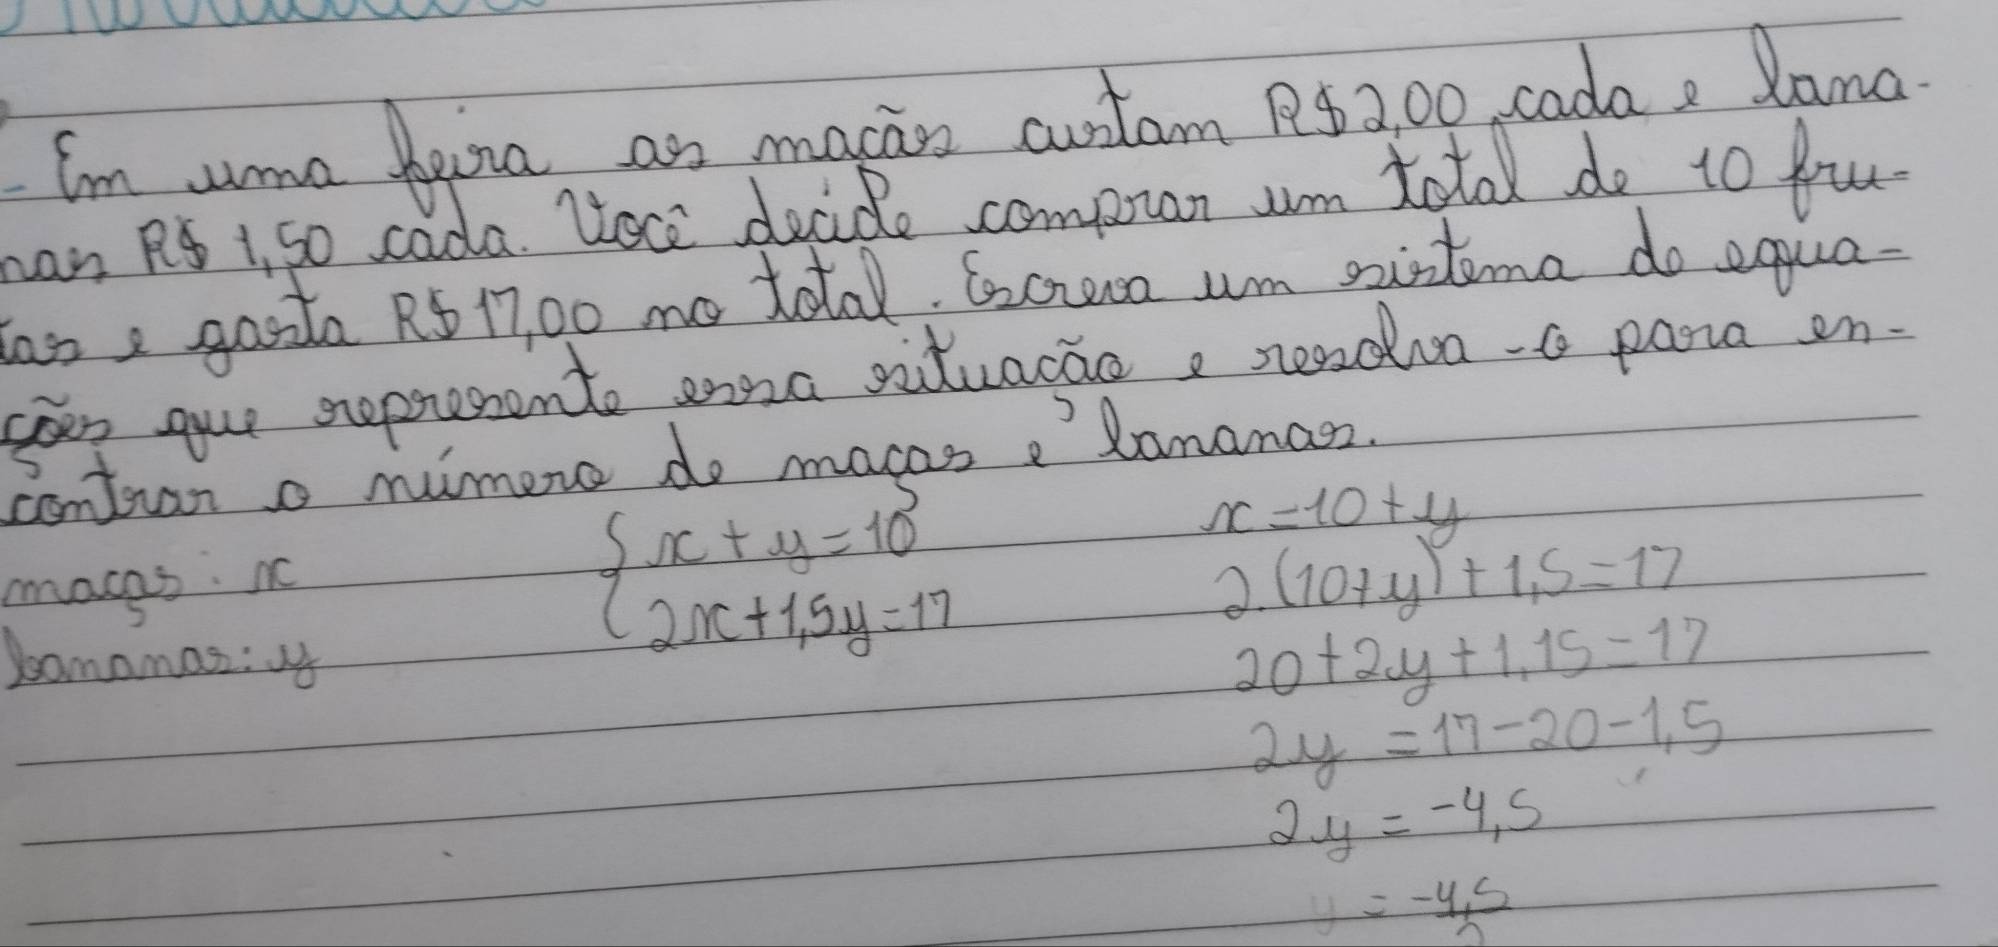 - Em uma feira as maçãs custam R$2,00 cada e bana-
nas R$ 1,50 cada. Você decide comprar um total de 10 fru-
tas e gasta R$17,00 no total. Escreva um sistema de equa-
ções que represente essa situação e resolva-o para en-
contrar o número de maças e bananas.
maças: x
bananas: y
{ x + y = 10
2x + 1,5y = 17
x = 10 + y
2.(10+y) + 1,5 = 17
20 + 2y + 1,15 = 17
2y = 17 - 20 - 1,5
2y = -4,5
y = -4,5